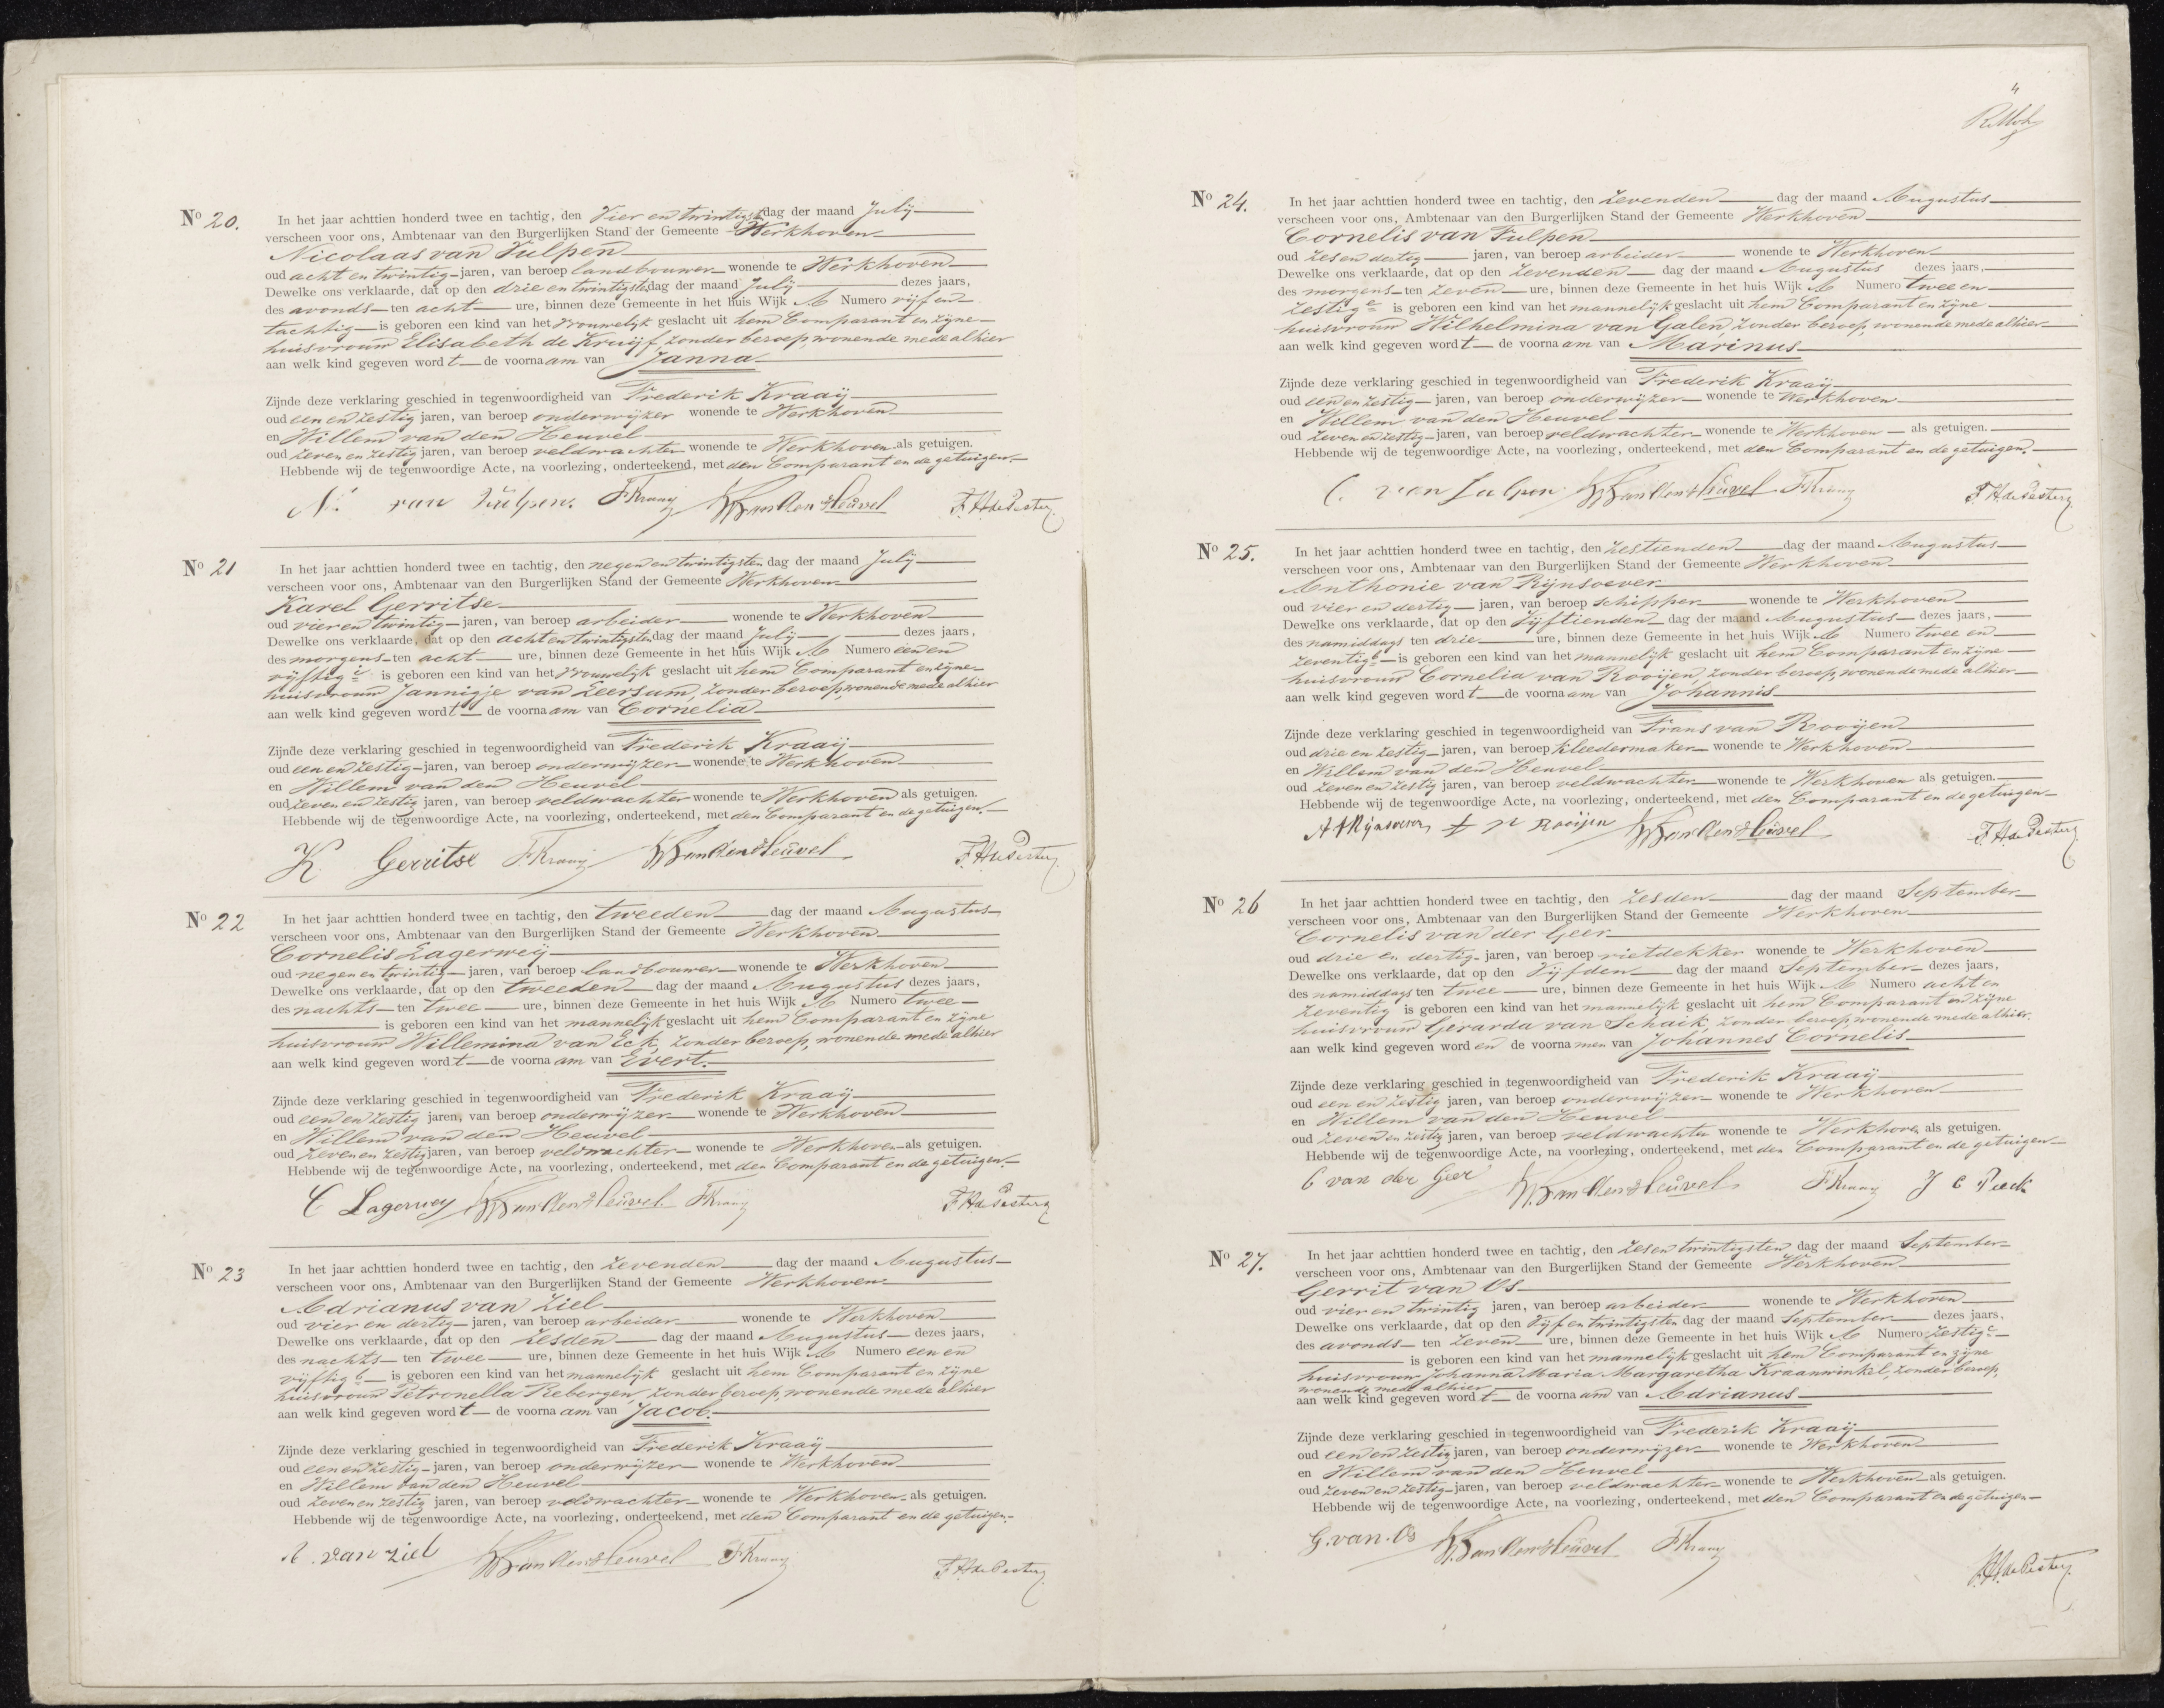 Nº 20. In het jaar achttien honderd twee en tachtig, den Vier en twintigste dag der maand July
verscheen voor ons, Ambtenaar van den Burgerlijken Stand der Gemeente Werkhoven
Nicolaas van Tulpen
oud acht en twintig jaren, van beroep landbouwer wonende te Werkhoven
Dewelke ons verklaarde, dat op den drie en twintigsten dag der maand July dezes jaars,
des avonds ten acht ure, binnen deze Gemeente in het huis Wijk A Numero vijf en
tachtig is geboren een kind van het vrouwelijk geslacht uit hem Comparant en zijne
huisvrouw Elisabeth de Kruijf, zonder beroep, wonende mede alhier
aan welk kind gegeven wordt de voornaam van Janna
Zijnde deze verklaring geschied in tegenwoordigheid van Frederik Kraaij
oud een en zestig jaren, van beroep onderwijzer wonende te Werkhoven
en Willem van den Heuvel
oud zeven en zestig jaren, van beroep veldwachter wonende te Werkhoven als getuigen.
Hebbende wij de tegenwoordige Acte, na voorlezing, onderteekend, met den Comparant en de getuigen.
N. van Tulpen. FKraaij W van den Heuvel F. H. de Pesters
Nº 21 In het jaar achttien honderd twee en tachtig, den negen en twintigsten dag der maand July
verscheen voor ons, Ambtenaar van den Burgerlijken Stand der Gemeente Werkhoven
Karel Gerritse
oud vier en twintig jaren, van beroep arbeider wonende te Werkhoven
Dewelke ons verklaarde, dat op den acht en twintigsten dag der maand July dezes jaars,
des morgens ten acht ure, binnen deze Gemeente in het huis Wijk A Numero een en
vijftig c is geboren een kind van het vrouwelijk geslacht uit hem Comparant en zijne
huisvrouw Jannigje van Leersum, zonder beroep, wonende mede alhier
aan welk kind gegeven wordt de voornaam van Cornelia
Zijnde deze verklaring geschied in tegenwoordigheid van Frederik Kraaij
oud een en zestig jaren, van beroep onderwijzer wonende te Werkhoven
en Willem van den Heuvel
oud zeven en zestig jaren, van beroep veldwachter wonende te Werkhoven als getuigen.
Hebbende wij de tegenwoordige Acte, na voorlezing, onderteekend, met den Comparant en de getuigen.
K. Gerritse FKraaij W van den Heuvel F. H. de Pesters
Nº 22 In het jaar achttien honderd twee en tachtig, den tweeden dag der maand Augustus
verscheen voor ons, Ambtenaar van den Burgerlijken Stand der Gemeente Werkhoven
Cornelis Lagerweij
oud negen en twintig jaren, van beroep landbouwer wonende te Werkhoven
Dewelke ons verklaarde, dat op den tweeden dag der maand Augustus dezes jaars,
des nachts ten twee ure, binnen deze Gemeente in het huis Wijk A Numero twee
is geboren een kind van het mannelijk geslacht uit hem Comparant en zijne
huisvrouw Willemina van Eck, zonder beroep, wonende mede alhier
aan welk kind gegeven wordt de voornaam van Evert.
Zijnde deze verklaring geschied in tegenwoordigheid van Frederik Kraaij
oud een en zestig jaren, van beroep onderwijzer wonende te Werkhoven
en Willem van den Heuvel
oud zeven en zestig jaren, van beroep veldwachter wonende te Werkhoven als getuigen.
Hebbende wij de tegenwoordige Acte, na voorlezing, onderteekend, met den Comparant en de getuigen.
C Lagerwey W van den Heuvel FKraaij F. H. de Pesters
Nº 23 In het jaar achttien honderd twee en tachtig, den zevenden dag der maand Augustus
verscheen voor ons, Ambtenaar van den Burgerlijken Stand der Gemeente Werkhoven
Adrianus van Ziel
oud vier en dertig jaren, van beroep arbeider wonende te Werkhoven
Dewelke ons verklaarde, dat op den zesden dag der maand Augustus dezes jaars,
des nachts ten twee ure, binnen deze Gemeente in het huis Wijk A Numero een en
vijftig b is geboren een kind van het mannelijk geslacht uit hem Comparant en zijne
huisvrouw Petronella Rebergen, zonder beroep, wonende mede alhier
aan welk kind gegeven wordt de voornaam van Jacob.
Zijnde deze verklaring geschied in tegenwoordigheid van Frederik Kraaij
oud een en zestig jaren, van beroep onderwijzer wonende te Werkhoven
en Willem van den Heuvel
oud zeven en zestig jaren, van beroep veldwachter wonende te Werkhoven als getuigen.
Hebbende wij de tegenwoordige Acte, na voorlezing, onderteekend, met den Comparant en de getuigen.
A. van Ziel W van den Heuvel FKraaij F. H. de Pesters
Nº 24. In het jaar achttien honderd twee en tachtig, den zevenden dag der maand Augustus
verscheen voor ons, Ambtenaar van den Burgerlijken Stand der Gemeente Werkhoven
Cornelis van Tulpen
oud zes en dertig jaren, van beroep arbeider wonende te Werkhoven
Dewelke ons verklaarde, dat op den zevenden dag der maand Augustus dezes jaars,
des morgens ten zeven ure, binnen deze Gemeente in het huis Wijk A Numero twee en
zestig c is geboren een kind van het mannelijk geslacht uit hem Comparant en zijne
huisvrouw Wilhelmina van Galen, zonder beroep, wonende mede alhier
aan welk kind gegeven wordt de voornaam van Marinus
Zijnde deze verklaring geschied in tegenwoordigheid van Frederik Kraaij
oud een en zestig jaren, van beroep onderwijzer wonende te Werkhoven
en Willem van den Heuvel
oud zeven en zestig jaren, van beroep veldwachter wonende te Werkhoven als getuigen.
Hebbende wij de tegenwoordige Acte, na voorlezing, onderteekend, met den Comparant en de getuigen.
C. van Tulpen W van den Heuvel FKraaij F. H. de Pesters
Nº 25. In het jaar achttien honderd twee en tachtig, den zestienden dag der maand Augustus
verscheen voor ons, Ambtenaar van den Burgerlijken Stand der Gemeente Werkhoven
Anthonie van Rijnsoever
oud vier en dertig jaren, van beroep schipper wonende te Werkhoven
Dewelke ons verklaarde, dat op den vijftienden dag der maand Augustus dezes jaars,
des namiddags ten drie ure, binnen deze Gemeente in het huis Wijk A Numero twee en
zeventig b is geboren een kind van het mannelijk geslacht uit hem Comparant en zijne
huisvrouw Cornelia van Rooijen, zonder beroep, wonende mede alhier
aan welk kind gegeven wordt de voornaam van Johannis
Zijnde deze verklaring geschied in tegenwoordigheid van Frans van Rooijen
oud drie en zestig jaren, van beroep kleedermaker wonende te Werkhoven
en Willem van den Heuvel
oud zeven en zestig jaren, van beroep veldwachter wonende te Werkhoven als getuigen.
Hebbende wij de tegenwoordige Acte, na voorlezing, onderteekend, met den Comparant en de getuigen
Rooijen W van den Heuvel F. H. de Pesters
Nº 26 In het jaar achttien honderd twee en tachtig, den zesden dag der maand September
verscheen voor ons, Ambtenaar van den Burgerlijken Stand der Gemeente Werkhoven
Cornelis van der Geer
oud drie en dertig jaren, van beroep rietdekker wonende te Werkhoven
Dewelke ons verklaarde, dat op den vijfden dag der maand September dezes jaars,
des namiddags ten twee ure, binnen deze Gemeente in het huis Wijk A Numero acht en
zeventig is geboren een kind van het mannelijk geslacht uit hem Comparant en zijne
huisvrouw Gerarda van Schaik, zonder beroep, wonende mede alhier.
aan welk kind gegeven worden de voornamen van Johannes Cornelis
Zijnde deze verklaring geschied in tegenwoordigheid van Frederik Kraaij
oud een en zestig jaren, van beroep onderwijzer wonende te Werkhoven
en Willem van den Heuvel
oud zeven en zestig jaren, van beroep veldwachter wonende te Werkhoven als getuigen.
Hebbende wij de tegenwoordige Acte, na voorlezing, onderteekend, met den Comparant en de getuigen
C van der Geer W van den Heuvel FKraaij J C
Nº 27. In het jaar achttien honderd twee en tachtig, den zes en twintigsten dag der maand September
verscheen voor ons, Ambtenaar van den Burgerlijken Stand der Gemeente Werkhoven
Gerrit van Os
oud vier en twintig jaren, van beroep arbeider wonende te Werkhoven
Dewelke ons verklaarde, dat op den vijf en twintigsten dag der maand September dezes jaars,
des avonds ten zeven ure, binnen deze Gemeente in het huis Wijk A Numero zestig c
is geboren een kind van het mannelijk geslacht uit hem Comparant en zijne
huisvrouw Johanna Maria Margaretha Kraanwinkel, zonder beroep,
wonende mede alhier
aan welk kind gegeven wordt de voornaam van Adrianus
Zijnde deze verklaring geschied in tegenwoordigheid van Frederik Kraaij
oud een en zestig jaren, van beroep onderwijzer wonende te Werkhoven
en Willem van den Heuvel
oud zeven en zestig jaren, van beroep veldwachter wonende te Werkhoven als getuigen.
Hebbende wij de tegenwoordige Acte, na voorlezing, onderteekend, met den Comparant en de getuigen
G. van Os W van den Heuvel FKraaij F. H. de Pesters